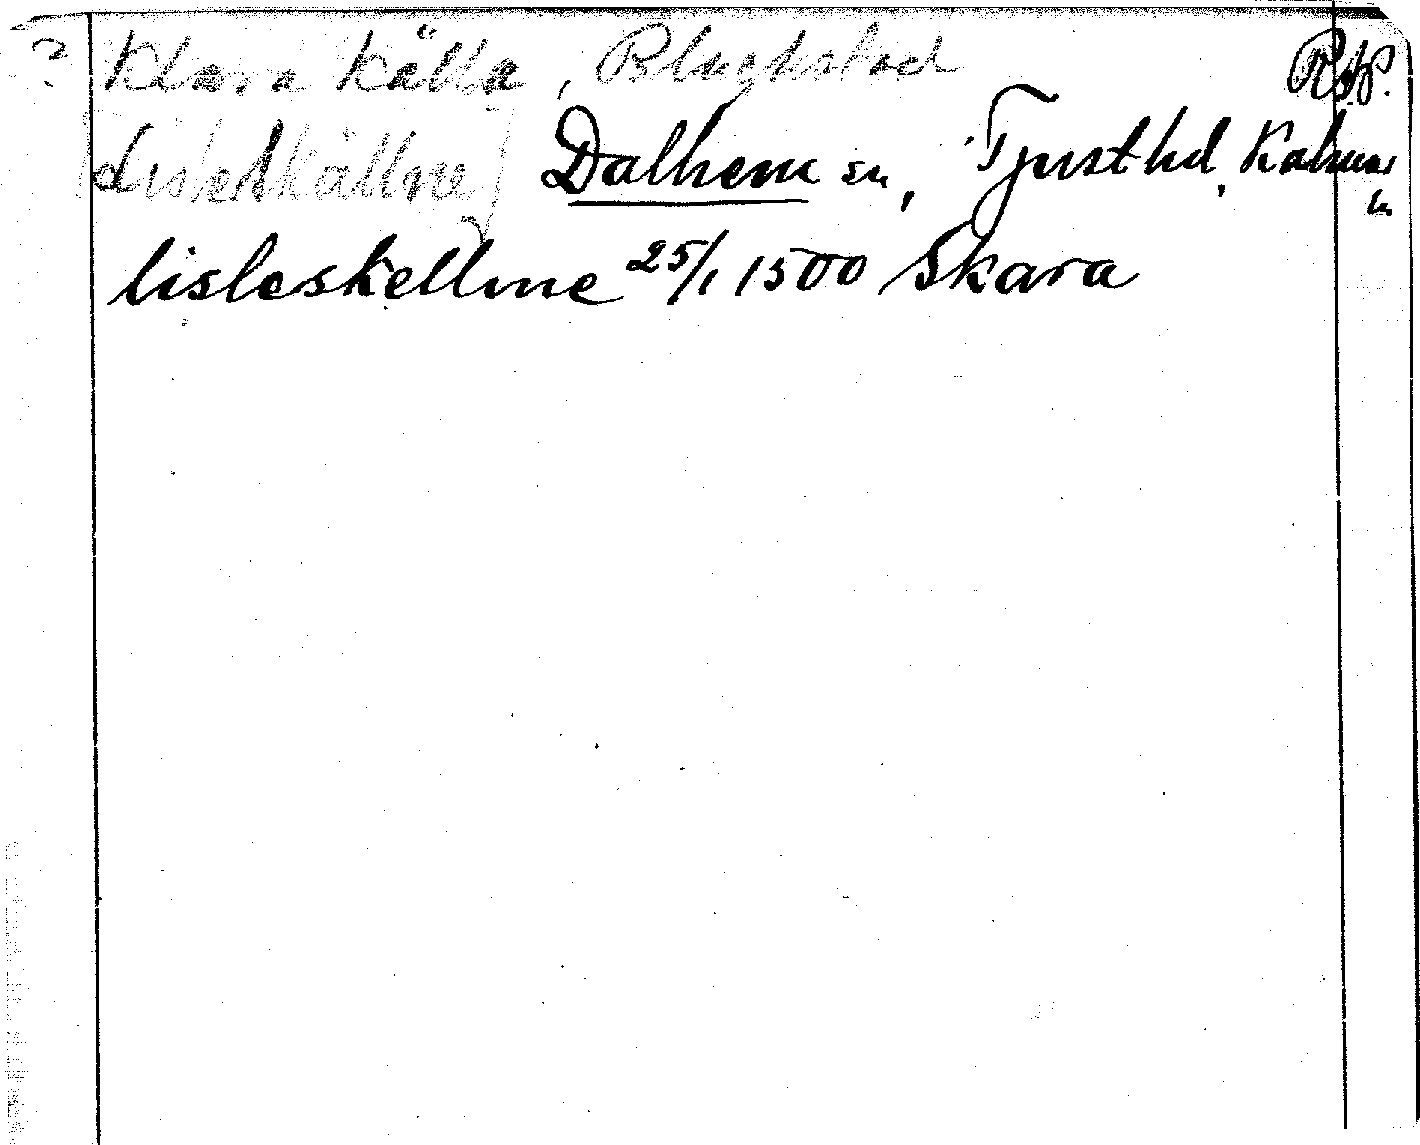 ? Klara Källa, Blackstad Rsp.
[Lisleskällne] Dalhem sn, Tjust hd, Kalmar
ln
lisleskellne 25/1 1500 Skara